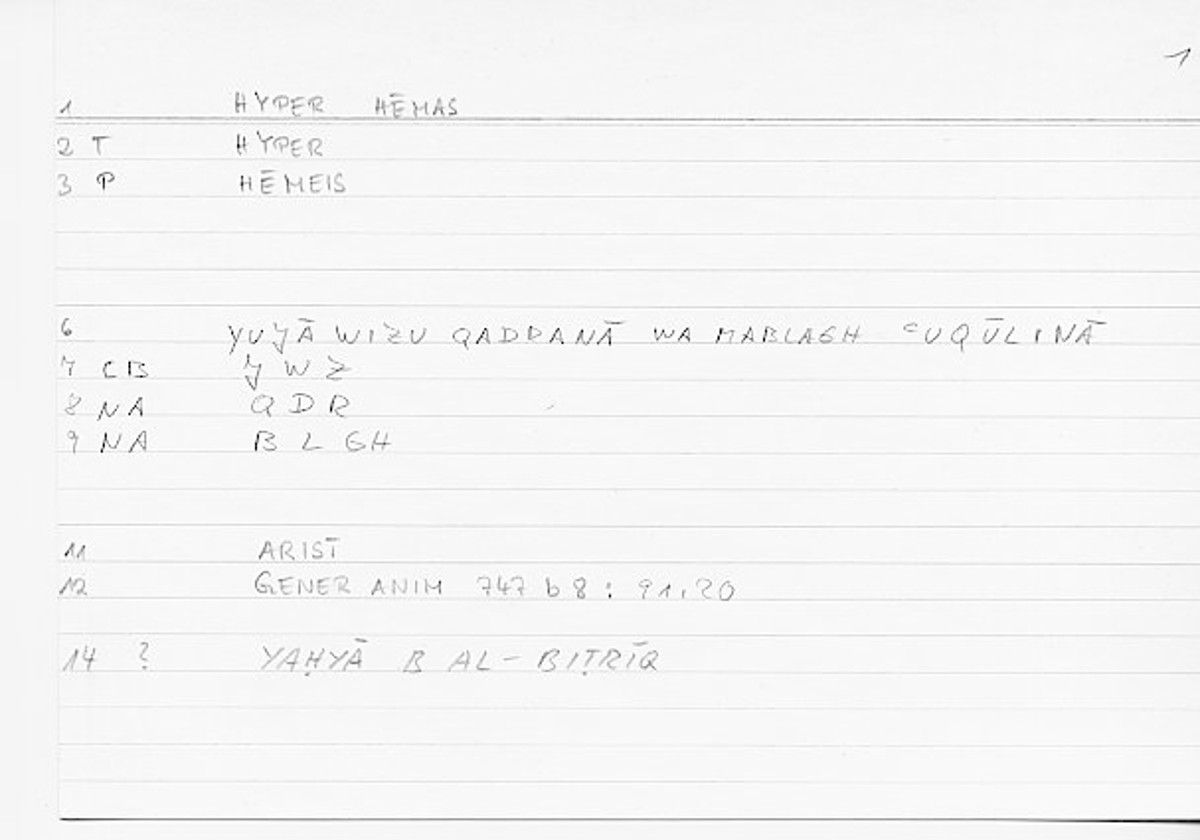 1
1 HYPER HĒMAS
2 T HYPER
3 P HĒMEIS
6 YUJĀWIZU QADDANĀ WA MABLAGH ʿUQŪLINĀ
7 CB J W Z
8 NA Q D R
9 NA B L GH
11 ARIST
12 GENER ANIM 747 b 8 : 91,20
14 ? YAḤYĀ B AL-BIṬRĪQ